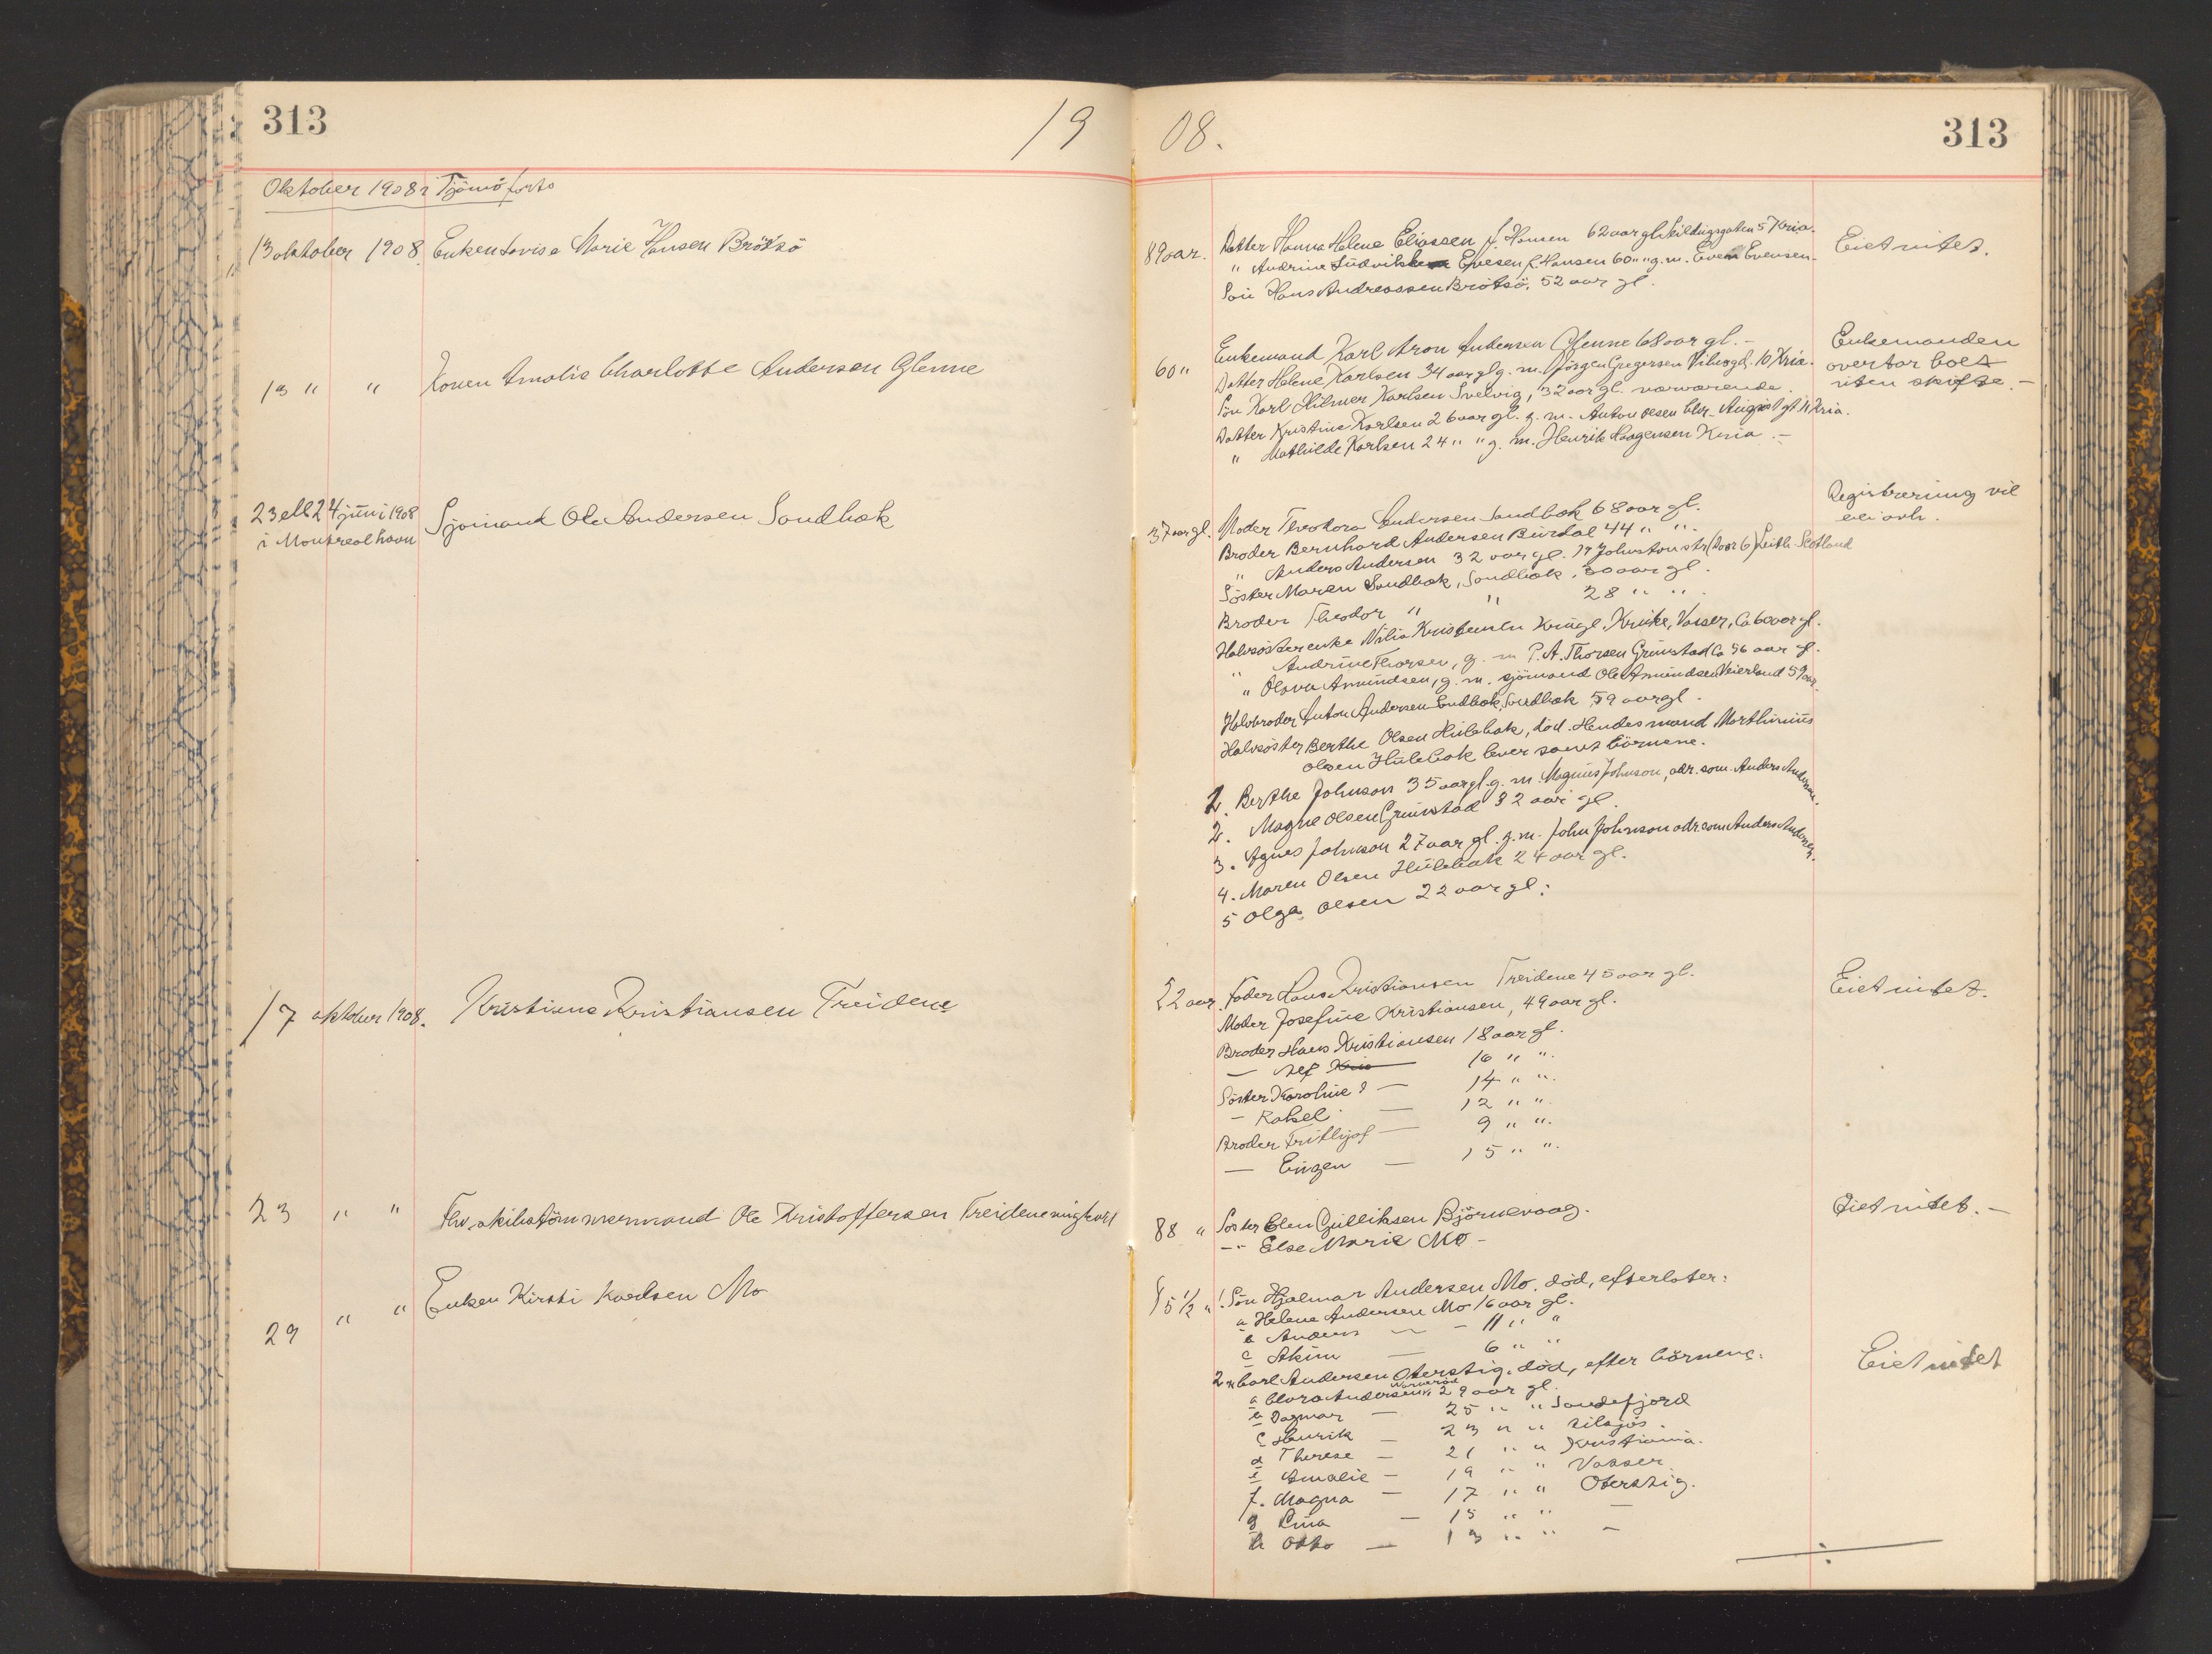 313
19
08.
313
Oktober 1908 i Tjömö forts
13 oktober 1908. Enken Lovise Marie Hansen Brötsö
89 aar. Datter Hanna Helene Eliassen f. Hansen 62 aar gl. Kria.
" Andrine Evesen f. Hansen 60 " " g. m. Even Evensen.
Sön Hans Andreassen Brötsö, 52 aar gl.
Eiet intet.
13 " " Konen Amalie Charlotte Andersen Glenne
60 " Enkemand Karl Aron Andersen Glenne 68 aar gl. -
Datter Helene Karlsen 34 aar gl g. m. Jörgen Gregersen Vibesgd. 10 Kria.
Sön Karl Hilmer Karlsen Svelvig, 32 aar gl. nærværende.
Datter Kristine Karlsen 26 aar gl. g. m. Anton Olsen Chr. Augustgt 11 Kria.
" Mathilde Karlsen 24 " " g. m. Henrik Haagensen Kria. -
Enkemanden
overtar boet
uten skifte. -
23 ell 24 juni 1908
i Montreal havn
Sjömand Ole Andersen Sandbæk
37 aar gl. Moder Theodora Andersen Sandbæk 68 aar gl.
Broder Bernhard Andersen Burdal 44 " ".
" Anders Andersen 32 aar gl. 17 Johnston str (door 6) Leith Scotland
Söster Maren Sandbæk, Sandbæk, 30 aar gl.
Broder Theodor " " 28 " ".
Halvsöster enke Nilia Kristensen Kruke, Vasser, Ca 60 aar gl.
" Andrine Thorsen, g. m P. A. Thorsen Grimstad Ca 56 aar gl.
" Olava Amundsen, g. m. sjömand Ole Amundsen Veierland 59 aar.
Halvbroder Anton Andersen Sandbæk, Sandbæk 59 aar gl.
Halvsöster Berthe Olsen Hulebak, död. Hendes mand Marthinius
Olsen Hulebak lever samt börnene.
1. Berthe Johnson 35 aar gl. g. m. Magnus Johnson, adr. som Anders Andersen.
2. Magne Olsen Grimstad 32 aar gl.
3. Agnes Johnson 27 aar gl. g. m. John Johnson adr. som Anders Andersen.
4. Maren Olsen Hulebak 24 aar gl.
5 Olga Olsen 22 aar gl:
Registrering vil
bli avh.
17 oktober 1908. Kristiane Kristiansen Treidene
22 aar. Fader Hans Kristiansen Treidene 45 aar gl.
Moder Josefine Kristiansen, 49 aar gl.
Broder Hans Kristiansen 18 aar gl.
— Alf 16 " ".
Söster Karoline — 14 " ".
— Rakel — 12 " ".
Broder Frithjof — 9 " ".
— Eugen — 15 " ".
Eiet intet.
23 " " Fhv. skibstömmermand Ole Kristoffersen Treidene ungkarl
88 " Söster Elen Gulliksen Björnevaag.
-"- Else Marie Mo -
Eiet intet. -
29 " " Enken Kirsti Karlsen Mo
85 1/2 " 1. Sön Hjalmar Andersen Mo. död, efterlater:
a Helene Andersen Mo 16 aar gl.
b Anders — - 11 " "
c Akim — 6 " "
2. Carl Andersen Oterstig. död, efter börnene:
a Clara Andersen 29 aar gl.
b Dagmar — 25 " " Sandefjord
c Henrik — 23 " " tilsjøs.
d Therese — 21 " " Kristiania.
e Amalie — 19 " " Vasser
f. Magna — 17 " " Oterstig.
g Lina — 15 " " —
h Otto — 13 " " —
Eiet intet